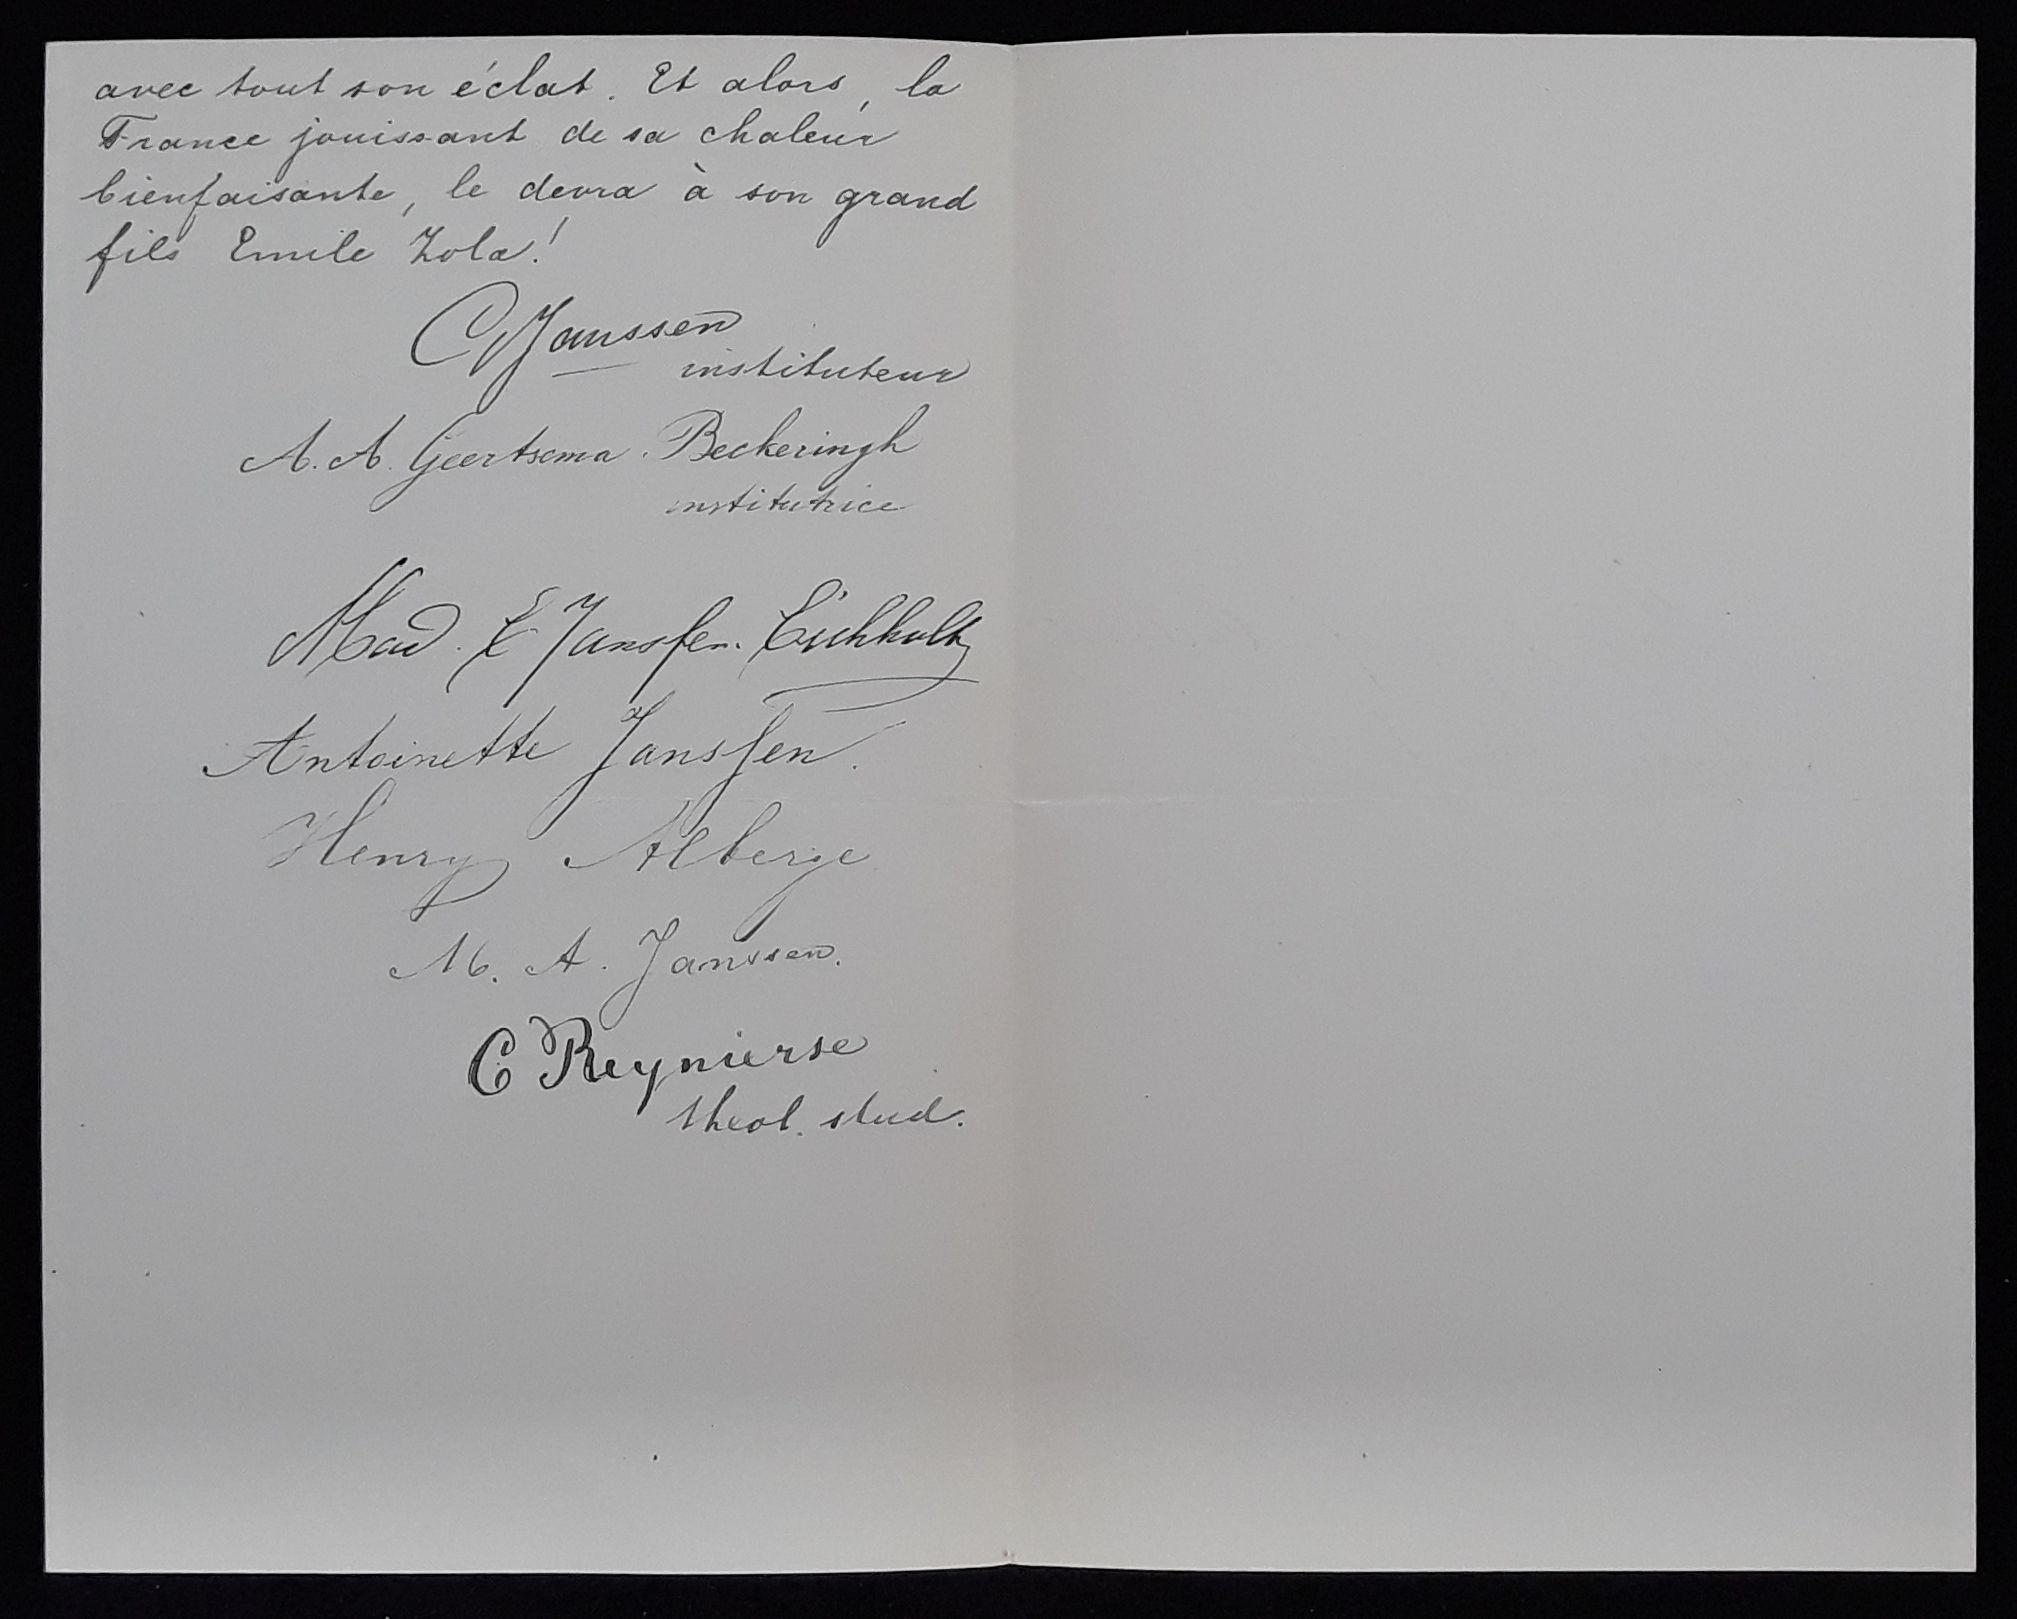 avec tout son éclat. Et alors, la
France jouissant de sa chaleur
bienfaisante, le devra à son grand
fils Emile Zola!
C Janssen
instituteur
A. A. Geertsema. Beckeringh
institutrice
Mad. E Janssen. Eichholtz
Antoinette Janssen.
Henry Alberge
M. A. Janssen.
C Reynierse
theol. stud.